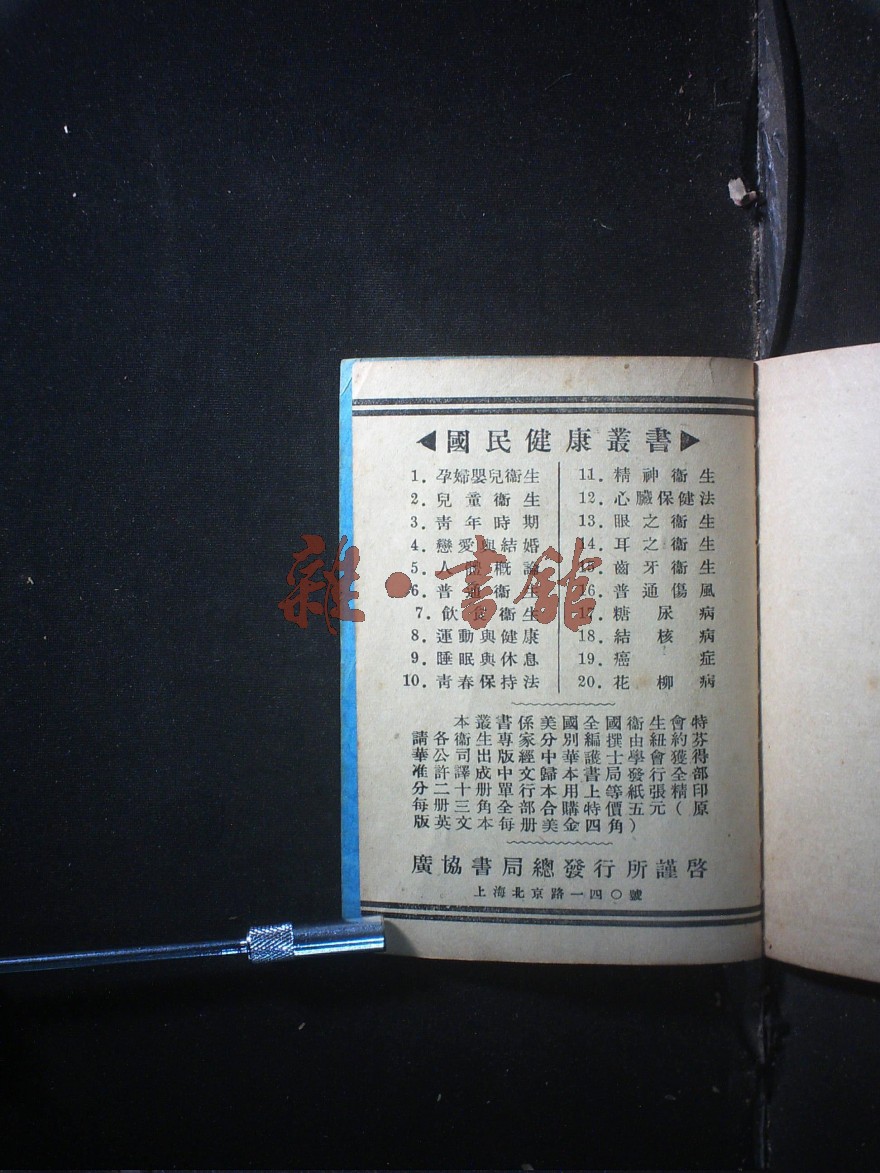 ◀國民健康叢書▶
1. 孕婦嬰兒衞生
2. 兒童衞生
3. 靑年時期
4. 戀愛與結婚
5. 人體概論
6. 普通衞生
7. 飲食衞生
8. 運動與健康
9. 睡眠與休息
10. 靑春保持法
11. 精神衞生
12. 心臟保健法
13. 眼之衞生
14. 耳之衞生
15. 齒牙衞生
16. 普通傷風
17. 糖尿病
18. 結核病
19. 癌症
20. 花柳病
本叢書係美國全國衞生會特
請各衞生專家分別編撰由紐約芬
華公司出版經中華護士學會獲得
准許譯成中文歸本書局發行全部
分二十册單行本用上等紙張精印
每册三角全部合購特價五元(原
版英文本每册美金四角)
廣協書局總發行所謹啓
上海北京路一四〇號
雜·書館